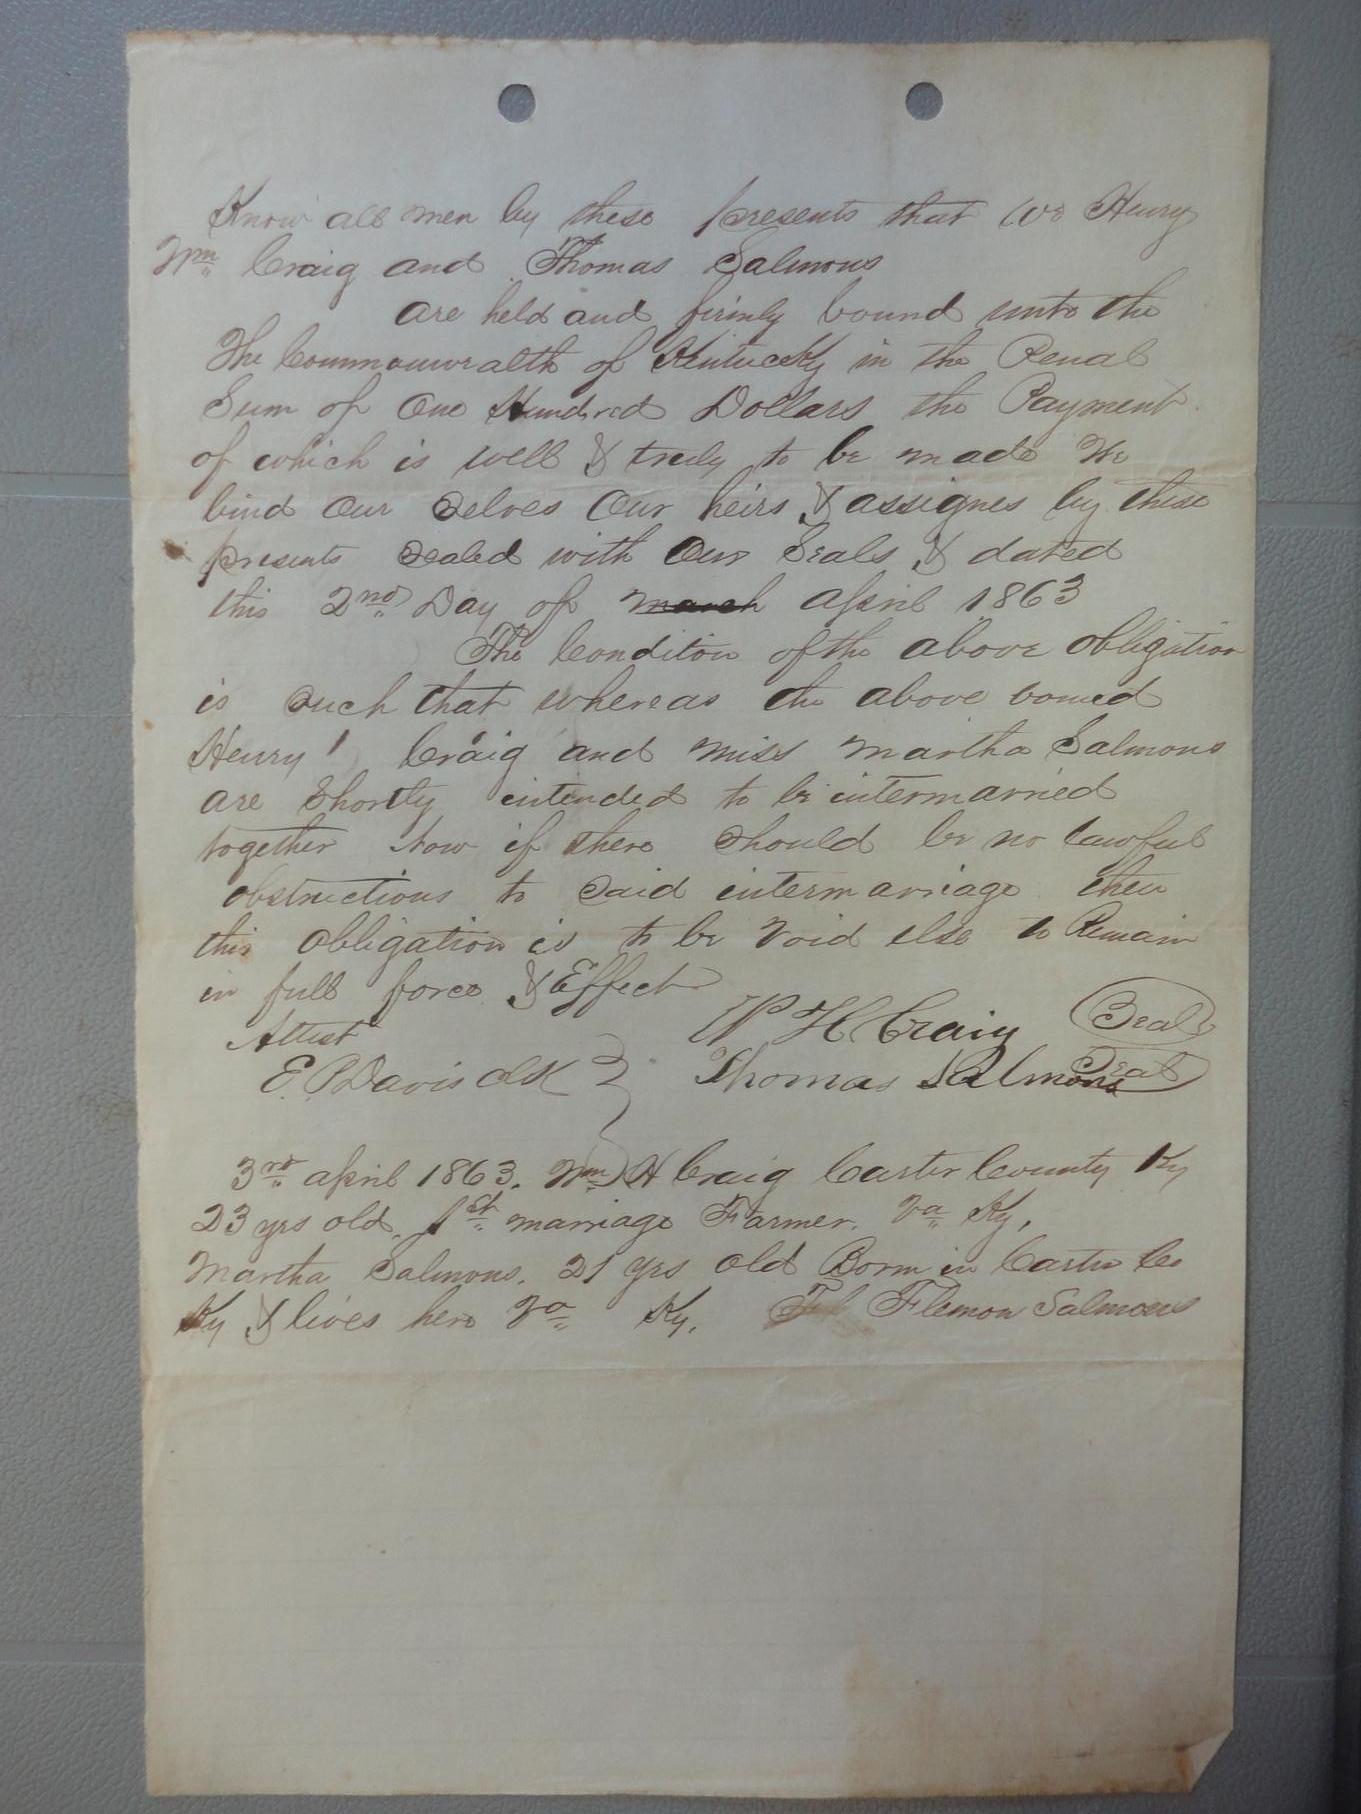 Know all men by these presents that we Henry
Wm Craig and Thomas Salmons
are held and firmly bound unto the
The Commonwealth of Kentucky in the Penal
Sum of One Hundred Dollars the Payment
of which is well & truly to be made We
bind Our Selves Our heirs & assignes by these
presents Sealed with Our Seals & dated
this 2nd Day of march april 1863
The Conditon of the above obligation
is Such that whereas the above boned
Henry Craig and Miss Martha Salmons
are Shortly intended to be intermarried
together Now if there Should be no lawful
obstructions to Said intermarriage then
this obligation is to be Void else to Remain
in full force & Effect
Attest W H Craig Seal
E. P. Davis clk Thomas Salmons Seal
3rd april 1863. Wm H Craig Carter County Ky
23 yrs old, 1st marriage Farmer. Va Ky,
Martha Salmons. 21 yrs old Born in Carter Co
Ky & lives here Va Ky. Flemon Salmons